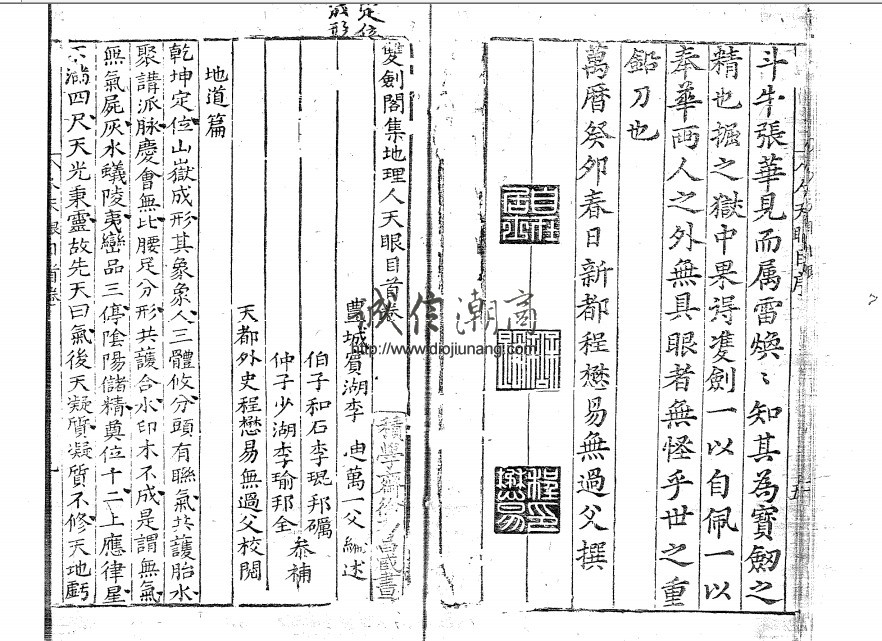 斗牛張華見而属雷煥〻知其為寶劒之
精也掘之獄中果得雙劍一以自佩一以
奉華两人之外無具眼者無怪乎世之重
鉛刀也
萬曆癸夘春日新都程懋易無過父撰
定位
成形
雙劍閣集地理人天眼目首卷
豊城賓湖李 萬一父編述
伯子和石李珽邦礪
仲子少湖李瑜邦全
叅補
天都外史程懋易無過父校閱
地道篇
乾坤定位山嶽成形其象象人三體攸分頭有聯氣共護胎水
聚講派脉慶會無比腰足分形共護合水印木不成是謂無氣
無氣屍灰水蟻陵夷巒品三停陰陽儲精奠位十二上應律星
不満四尺天光秉靈故先天曰氣後天凝質凝質不修天地虧
誠信潮商
http://www.diojiunang.com